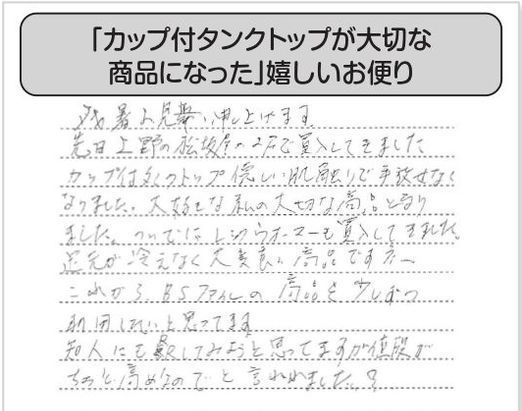 「カップ付タンクトップが大切な
商品になった」嬉しいお便り
残暑お見舞い申し上げます
先日上野の松坂屋の2Fで買入してきました
カップ付タンクトップ優しい肌触りで手放せなく
なりました。大好きな私の大切な商品となり
ました。ついでにレッグウォーマーも買入してきました。
足元が冷えなく大変良い商品ですネー
これから BSファインの商品を少しずつ
利用したいと思ってます
知人にも してみようと思ってますが値段が
ちょっと高めなのでと言われました。?